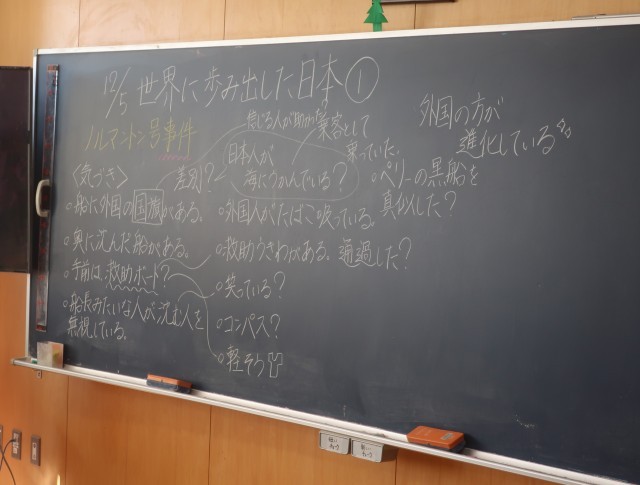 12/5 世界に歩み出した日本①
ノルマントン号事件
〈気づき〉
○船に外国の国旗がある。
○奥に沈んだ船がある。
○手前は救助ボート?
○船長みたいな人が沈む人を
無視している。
差別?
日本人が
海にうかんでいる?
乗客として
乗っていた。
○外国人がたばこ吸っている。
○救助うきわがある。通過した?
○笑っている?
○コンパス?
○軽そう
外国の方が
進化している
○ペリーの黒船を
真似した?